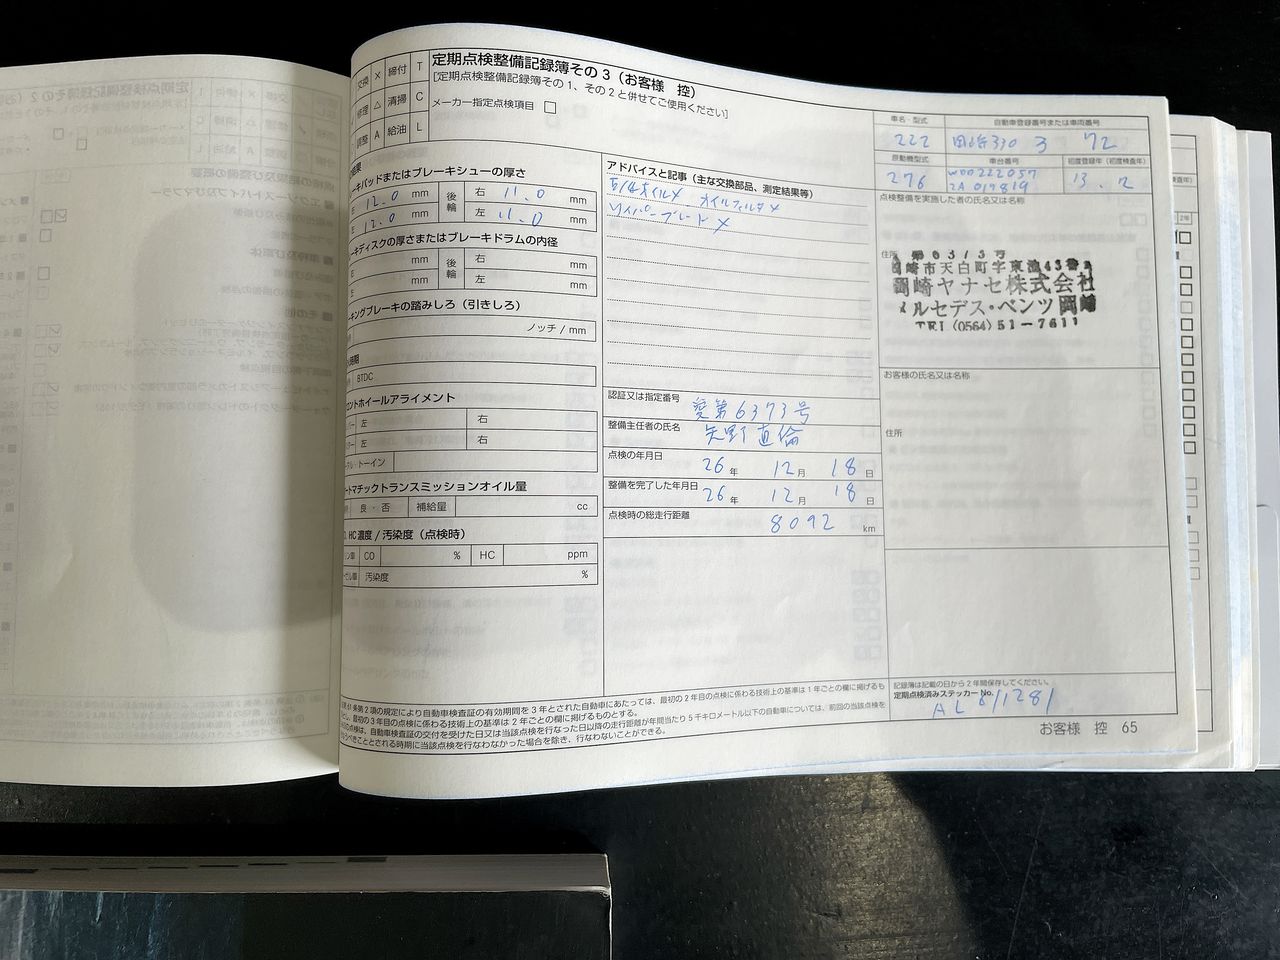 定期点検整備記録簿その3(お客様 控)
[定期点検整備記録簿その1、その2と併せてご使用ください]
メーカー指定点検項目
交換 × 締付 T
修理 △ 清掃 C
調整 A 給油 L
ーキパッドまたはブレーキシューの厚さ
12.0 mm 後輪 右 11.0 mm
12.0 mm 左 11.0 mm
ーキディスクの厚さまたはブレーキドラムの内径
mm 後輪 右 mm
mm 左 mm
ーキングブレーキの踏みしろ(引きしろ)
ノッチ / mm
BTDC
ロントホイールアライメント
左 右
左 右
トーイン
ートマチックトランスミッションオイル量
良・否 補給量 cc
HC 濃度 / 汚染度(点検時)
CO % HC ppm
汚染度 %
アドバイスと記事(主な交換部品、測定結果等)
オイルフィルタ×
ワイパーブレード ×
認証又は指定番号 愛第6373号
整備主任者の氏名 矢野 直倫
点検の年月日 26年 12月 18日
整備を完了した年月日 26年 12月 18日
点検時の総走行距離 8092 km
車名・型式 自動車登録番号または車両番号
222 岡崎330 3 72
原動機型式 車台番号 初度登録年(初度検査年)
276 WDD222057 2A 017819 13.12
点検整備を実施した者の氏名又は名称
住所
岡崎ヤナセ株式会社
メルセデス・ベンツ 岡崎
TEL (0564) 51-7611
お客様の氏名又は名称
住所
記録簿は記載の日から2年間保存してください。
定期点検済みステッカーNo.
条第2項の規定により自動車検査証の有効期間を3年とされた自動車にあたっては、最初の2年目の点検に係わる技術上の基準は1年ごとの欄に掲げるも
とし、最初の3年目の点検に係わる技術上の基準は2年ごとの欄に掲げるものとする。
の点検は、自動車検査証の交付を受けた日又は当該点検を行なった日以降の走行距離が年間当たり5千キロメートル以下の自動車については、前回の当該点検を
うべきこととされる時期に当該点検を行なわなかった場合を除き、行なわないことができる。
お客様 控 65